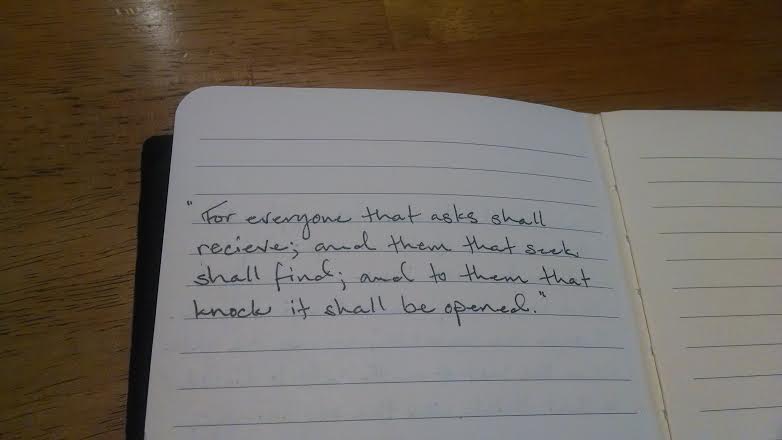 "For everyone that asks shall
recieve; and them that seek
shall find; and to them that
knock it shall be opened."